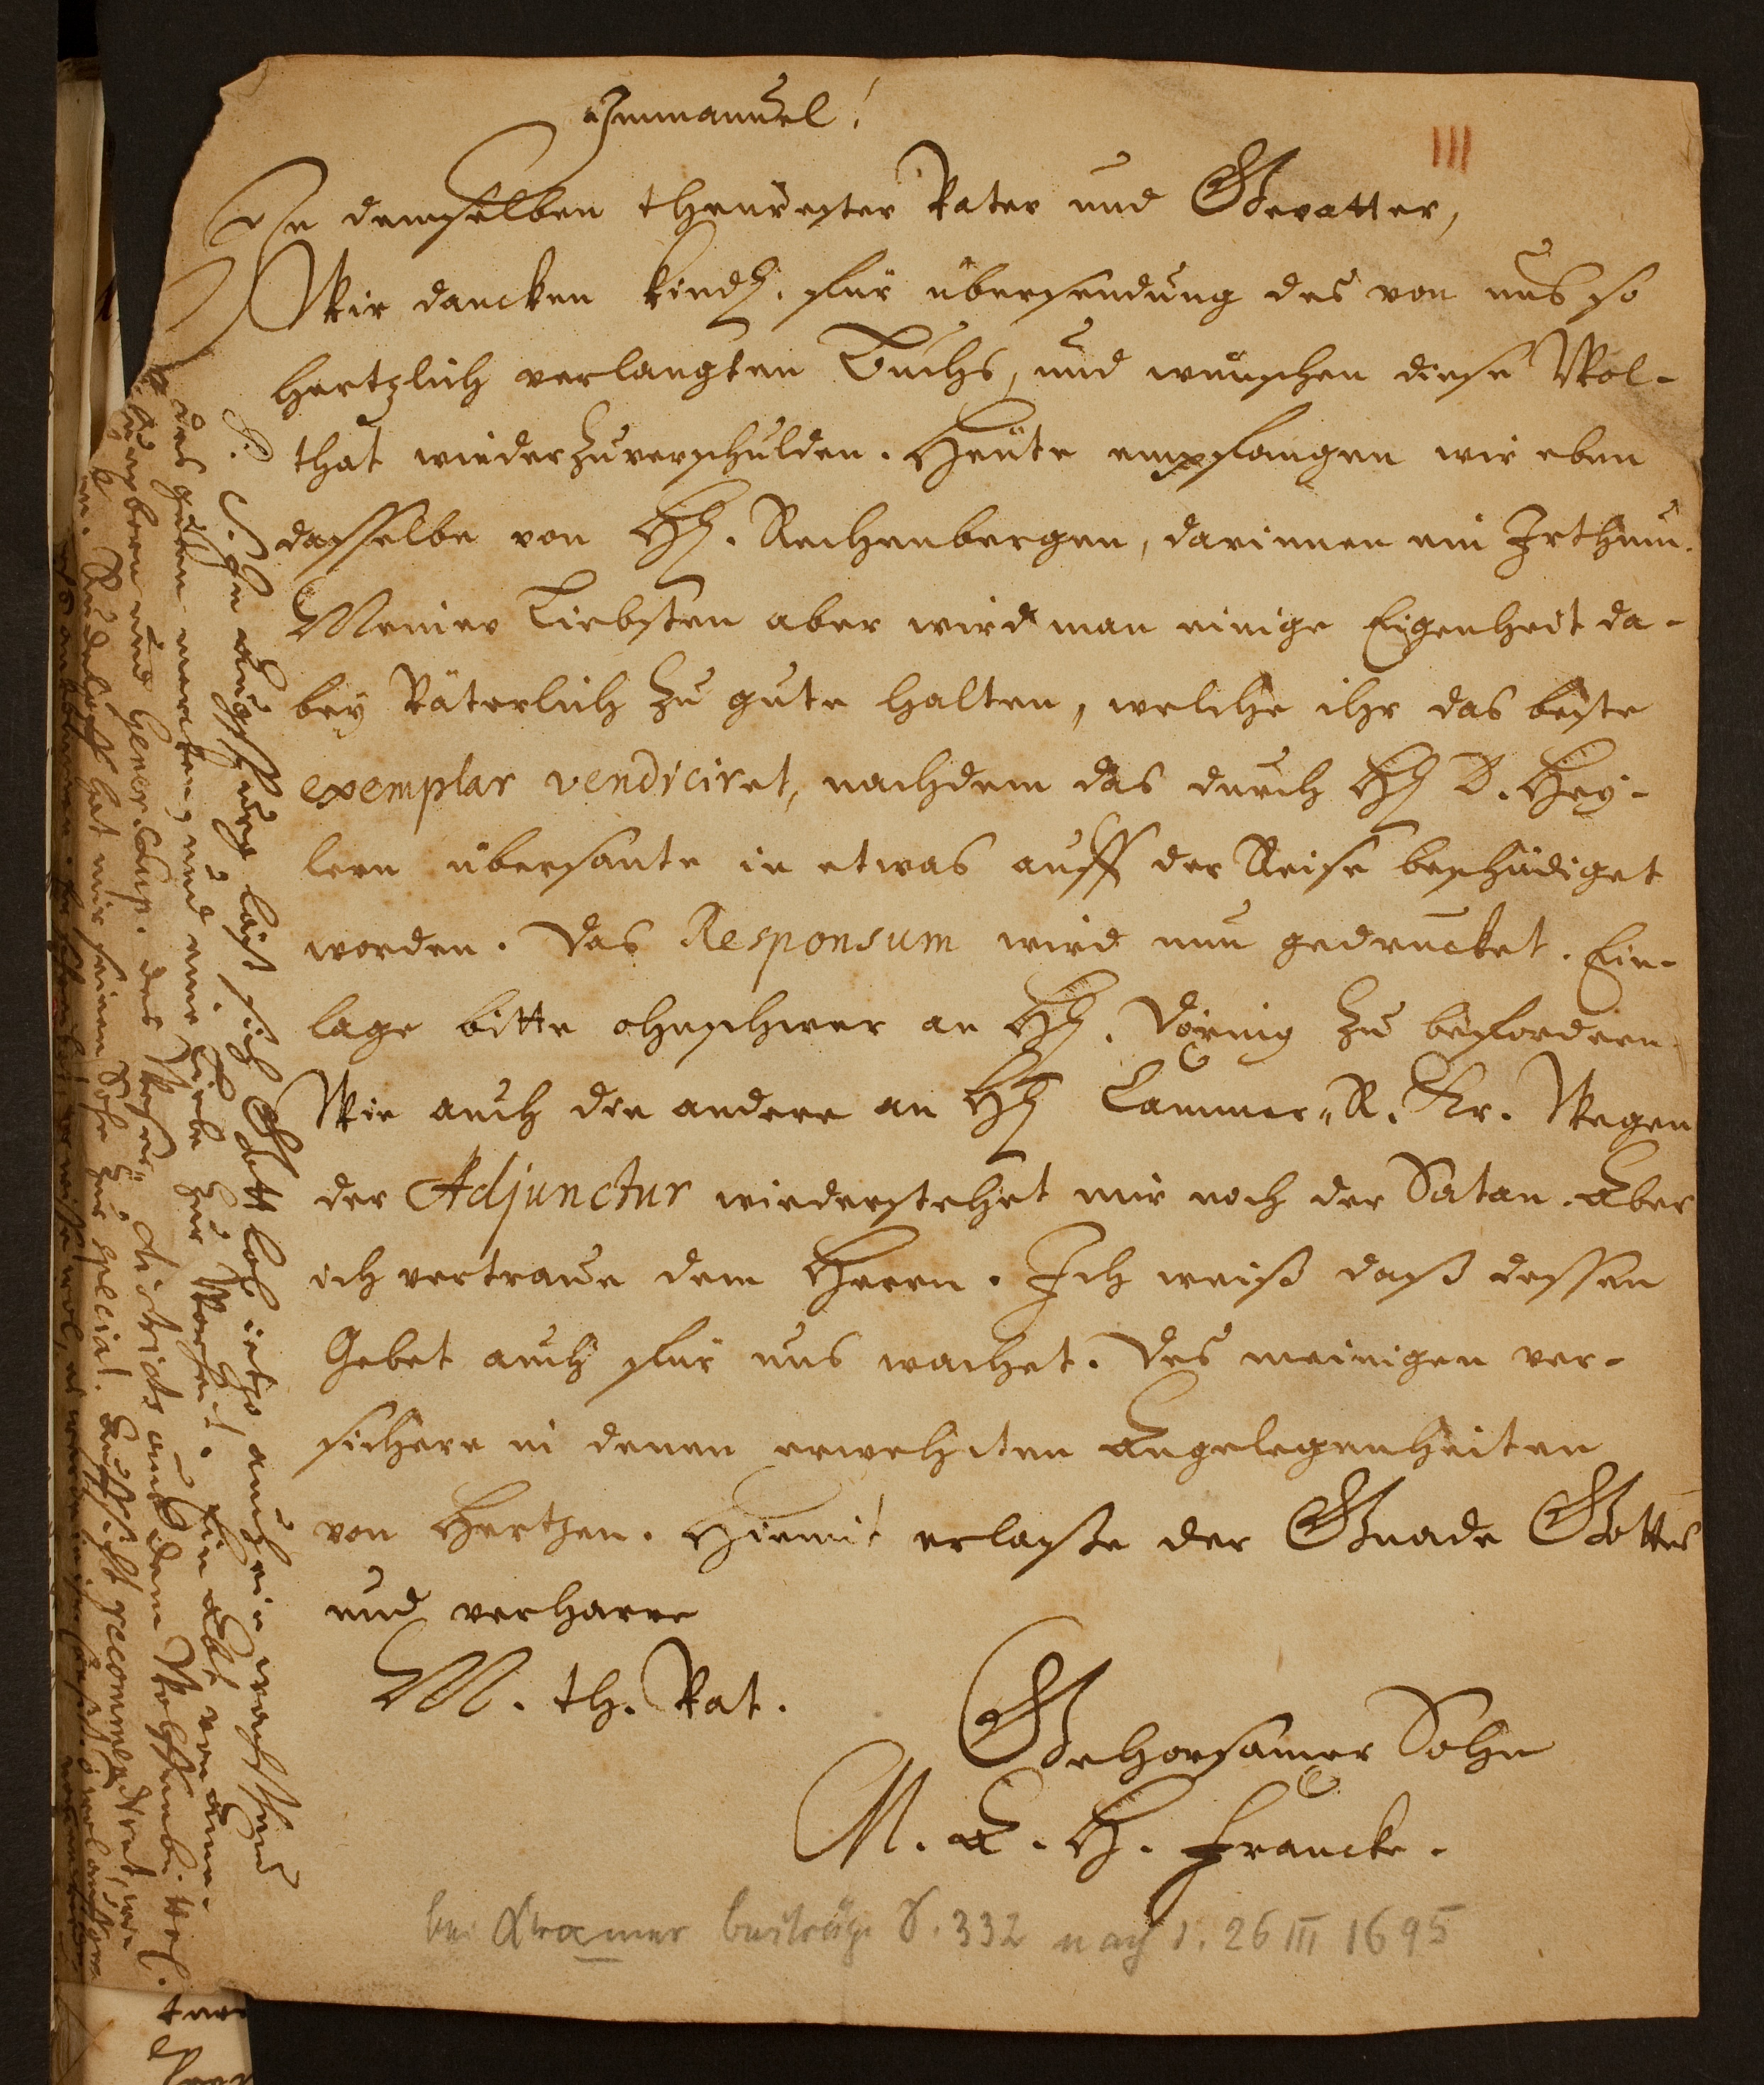 Immanuel!
III
In demselben theurester Vater und Gevatter,
Wir dancken kindl. für übersendung des von uns so
hertzlich verlangten Buchs, und wünschen diese Wol-
that wiederzuverschulden. Heute empfangen wir eben
dasselbe von H. Rechenbergen, darinnen ein Irthum.
Meiner Liebsten aber wird man einige Eigenheit da-
bey Väterlich zu gute halten, welche ihr das beste
exemplar vendiciret, nachdem das durch H D. Hey-
lern übersante in etwas auff der Reise beschädiget
worden. Das Responsum wird nun gedrucket. Ein-
lage bitte ohnschwer an H. Döring zu befordern.
Wie auch die andere an H Cammer-R. Kr. Wegen
der Adjunctur wiederstehet mir noch der Satan. Aber
ich vertraue dem Herrn. Ich weiß daß dessen
Gebet auch für uns wachet. Des meinigen ver-
sichere in denen erwehnten Angelegenheiten
von Hertzen. Hiemit erlaße der Gnade Gottes
und verharre
M. th. Vat.
Gehorsamer Sohn
M. A. H. Francke.
bei Kramer Beiträge S. 332 nach d. 26 III 1695
P. S. In läst sich Gott lob ietzo auch ein
des guten mercken, und eine Liebe zur Warheit. Ein Abt von
und Gener. Sup. des Weser-districts aus dem Wolffenb.
hat mir seinen Sohn zur special Auffsicht recommendiret,